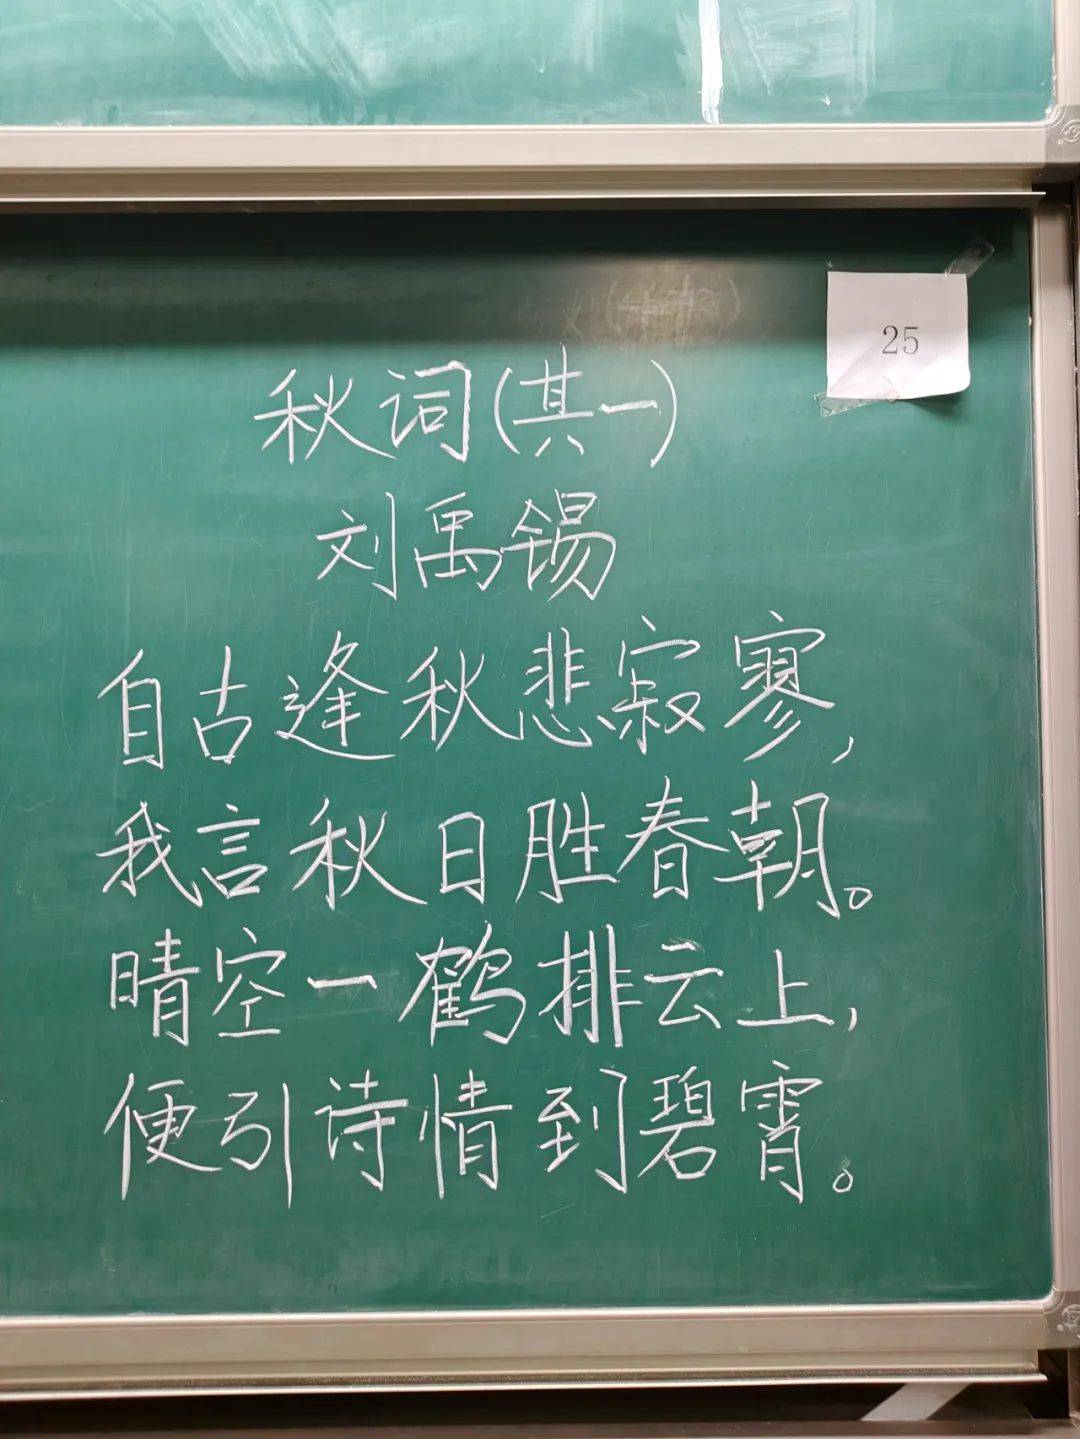 25
秋词(其一)
刘禹锡
自古逢秋悲寂寥,
我言秋日胜春朝。
晴空一鹤排云上,
便引诗情到碧霄。